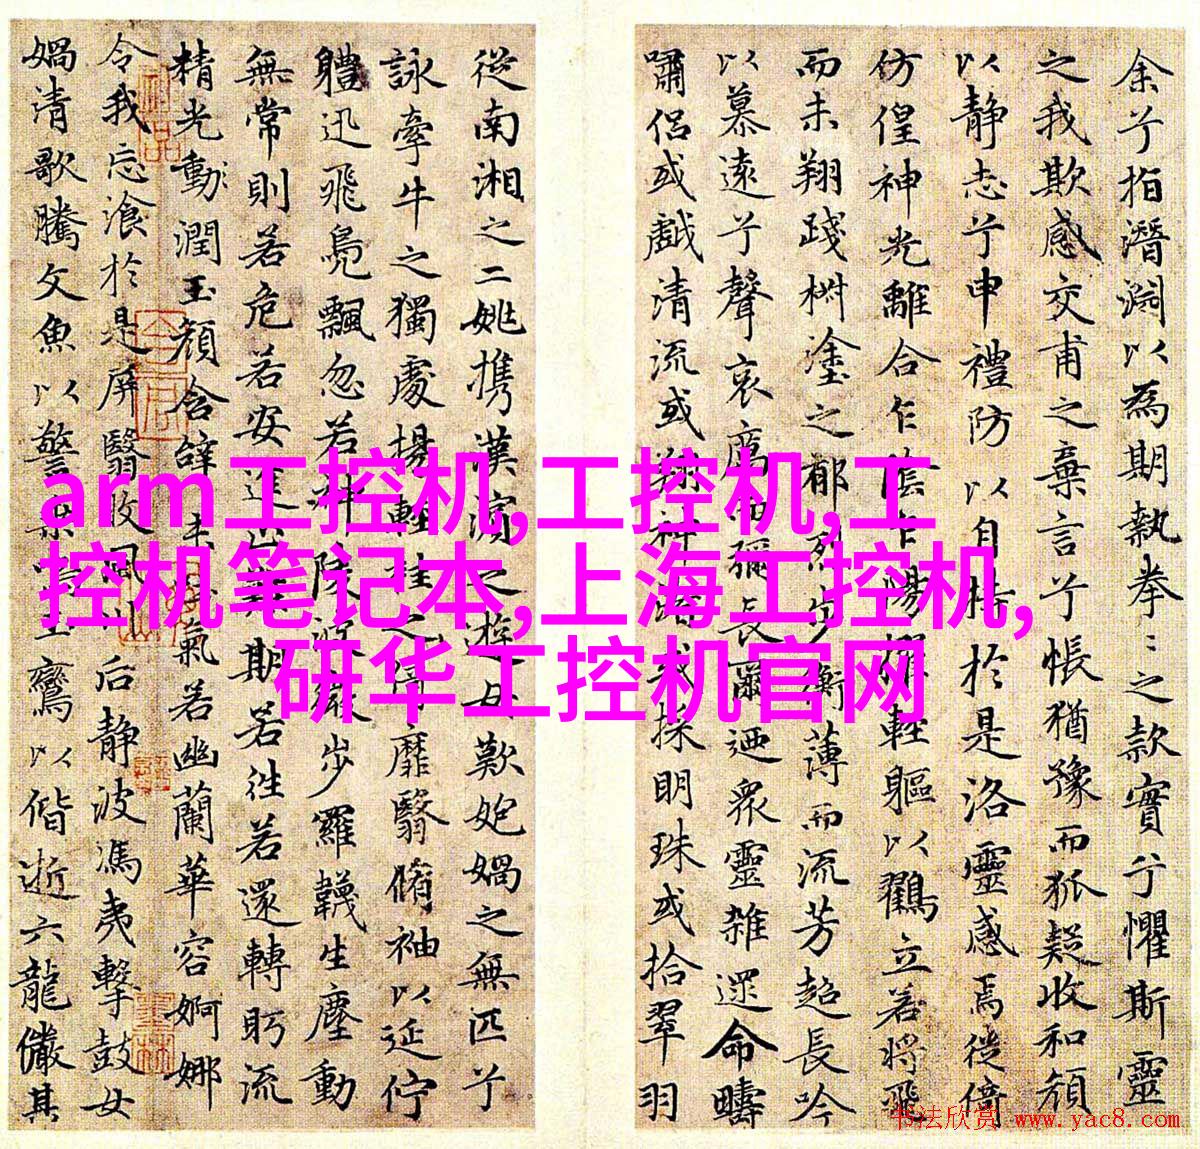 余兮指潛淵以為期執拳〻之款實兮懼斯靈
之我欺感交甫之棄言兮悵猶豫而狐疑收和顏
以靜志兮申禮防以自持於是洛靈感焉徙倚
仿偟神光離合乍陰乍陽擢輕軀以鶴立若將飛
而未翔踐椒塗之郁烈步蘅薄而流芳超長吟
以慕遠兮聲哀厲而彌長爾迺眾靈雜遝命疇
嘯侶或戲清流或翔神渚或採明珠或拾翠羽
從南湘之二姚攜漢濱之遊女歎匏媧之無匹兮
詠牽牛之獨處揚輕袿之倚靡翳脩袖以延佇
體迅飛鳧飄忽若神陵波微步羅韈生塵動
無常則若危若安進止難期若往若還轉眄流
精光動潤玉顏含辭未吐氣若幽蘭華容婀娜
令我忘湌於是屏翳收風川后靜波馮夷擊鼓女
媧清歌騰文魚以警乘鳴玉鸞以偕逝六龍儼其
arm工控机,工控机,工
控机笔记本,上海工控机,
研华工控机官网
书法欣赏 www.yac8.com